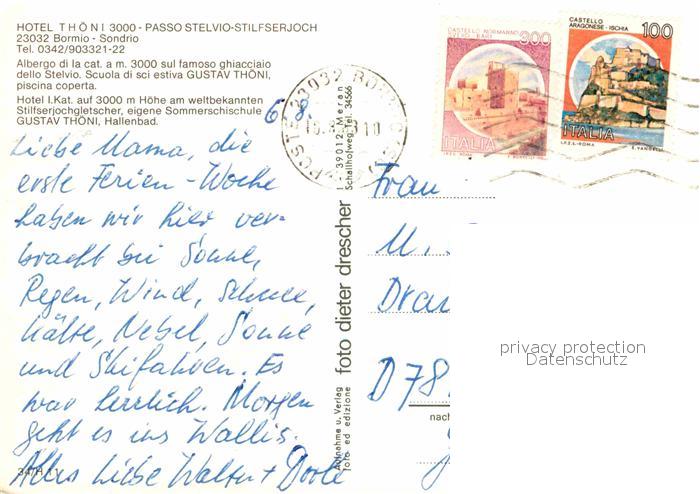 HOTEL THÖNI 3000 - PASSO STELVIO-STILFSERJOCH
23032 Bormio - Sondrio
Tel. 0342/903321-22
Albergo di Ia cat. a m. 3000 sul famoso ghiacciaio
dello Stelvio. Scuola di sci estiva GUSTAV THÖNI,
piscina coperta.
Hotel I.Kat. auf 3000 m Höhe am weltbekannten
Stilfserjochgletscher, eigene Sommerschischule
GUSTAV THÖNI, Hallenbad.
6.8.
Liebe Mama, die
erste Ferien-Woche
haben wir hier ver-
bracht bei Sonne,
Regen, Wind, Schnee,
Kälte, Nebel, Sonne
und Skifahren. Es
war herrlich. Morgen
geht es ins Wallis.
Alles Liebe Walter +
foto dieter drescher
39012 Meran
Schallhofweg Tel. 34566
Aufnahme u. Verlag
foto ed edizione
POSTE 23032 BORMIO
CASTELLO NORMANNO
SVEVO BARI
300
ITALIA
CASTELLO
ARAGONESE - ISCHIA
100
ITALIA
I.P.Z.S.-ROMA
E. VANGELLI
Frau
M.
Dra
D 78
nach
privacy protection
Datenschutz